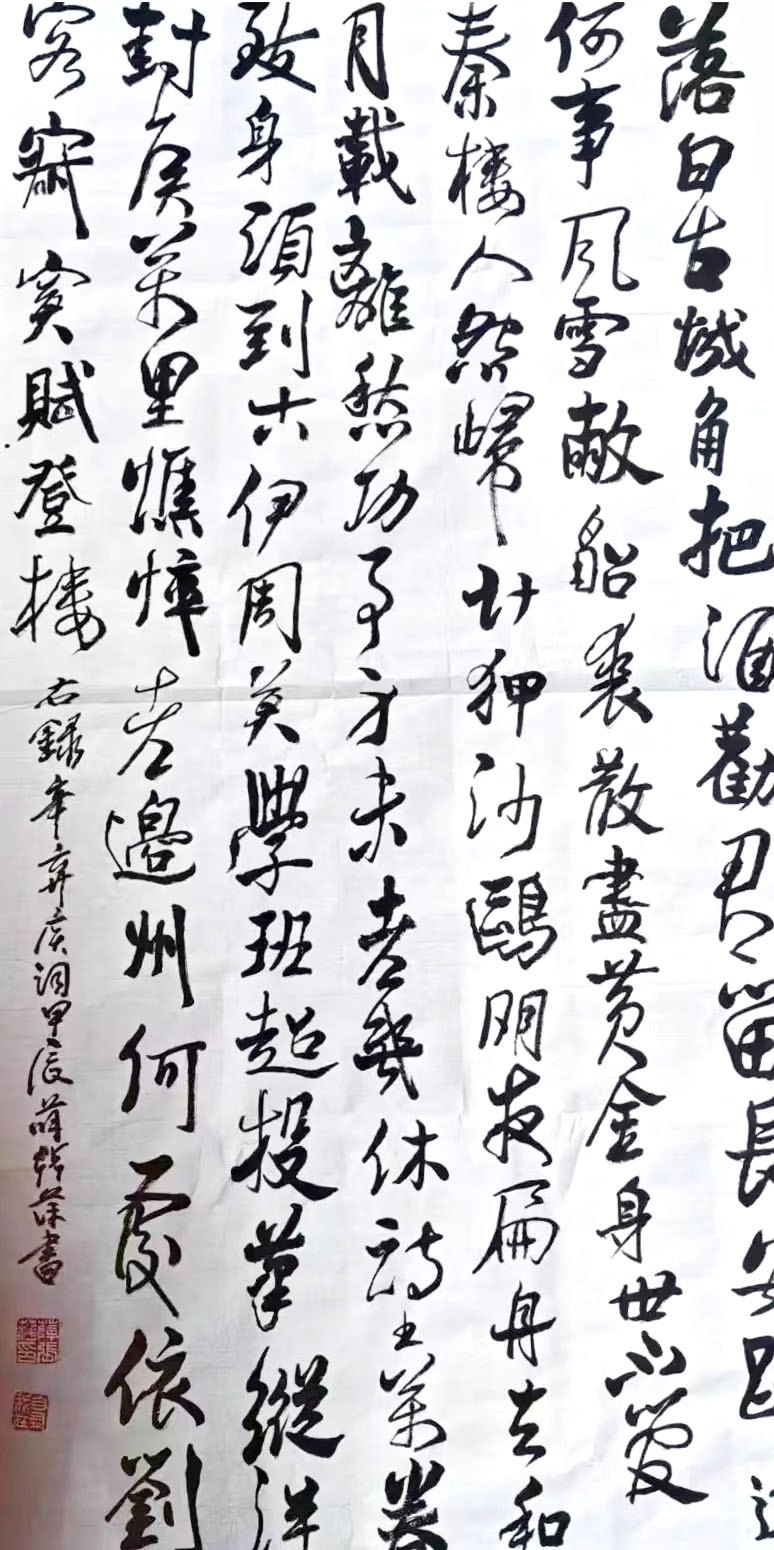 落日古城角把酒勸君留長安路遠
何事風雪敝貂裘散盡黃金身世不管
秦樓人怨歸計狎沙鷗明夜扁舟去和
月載離愁功事身未老幾休詩書萬卷
致身須到古伊周莫學班超投筆縱得
封侯萬里憔悴老邊州何處依劉
客寂寞賦登樓
右錄辛棄疾詞甲辰 書